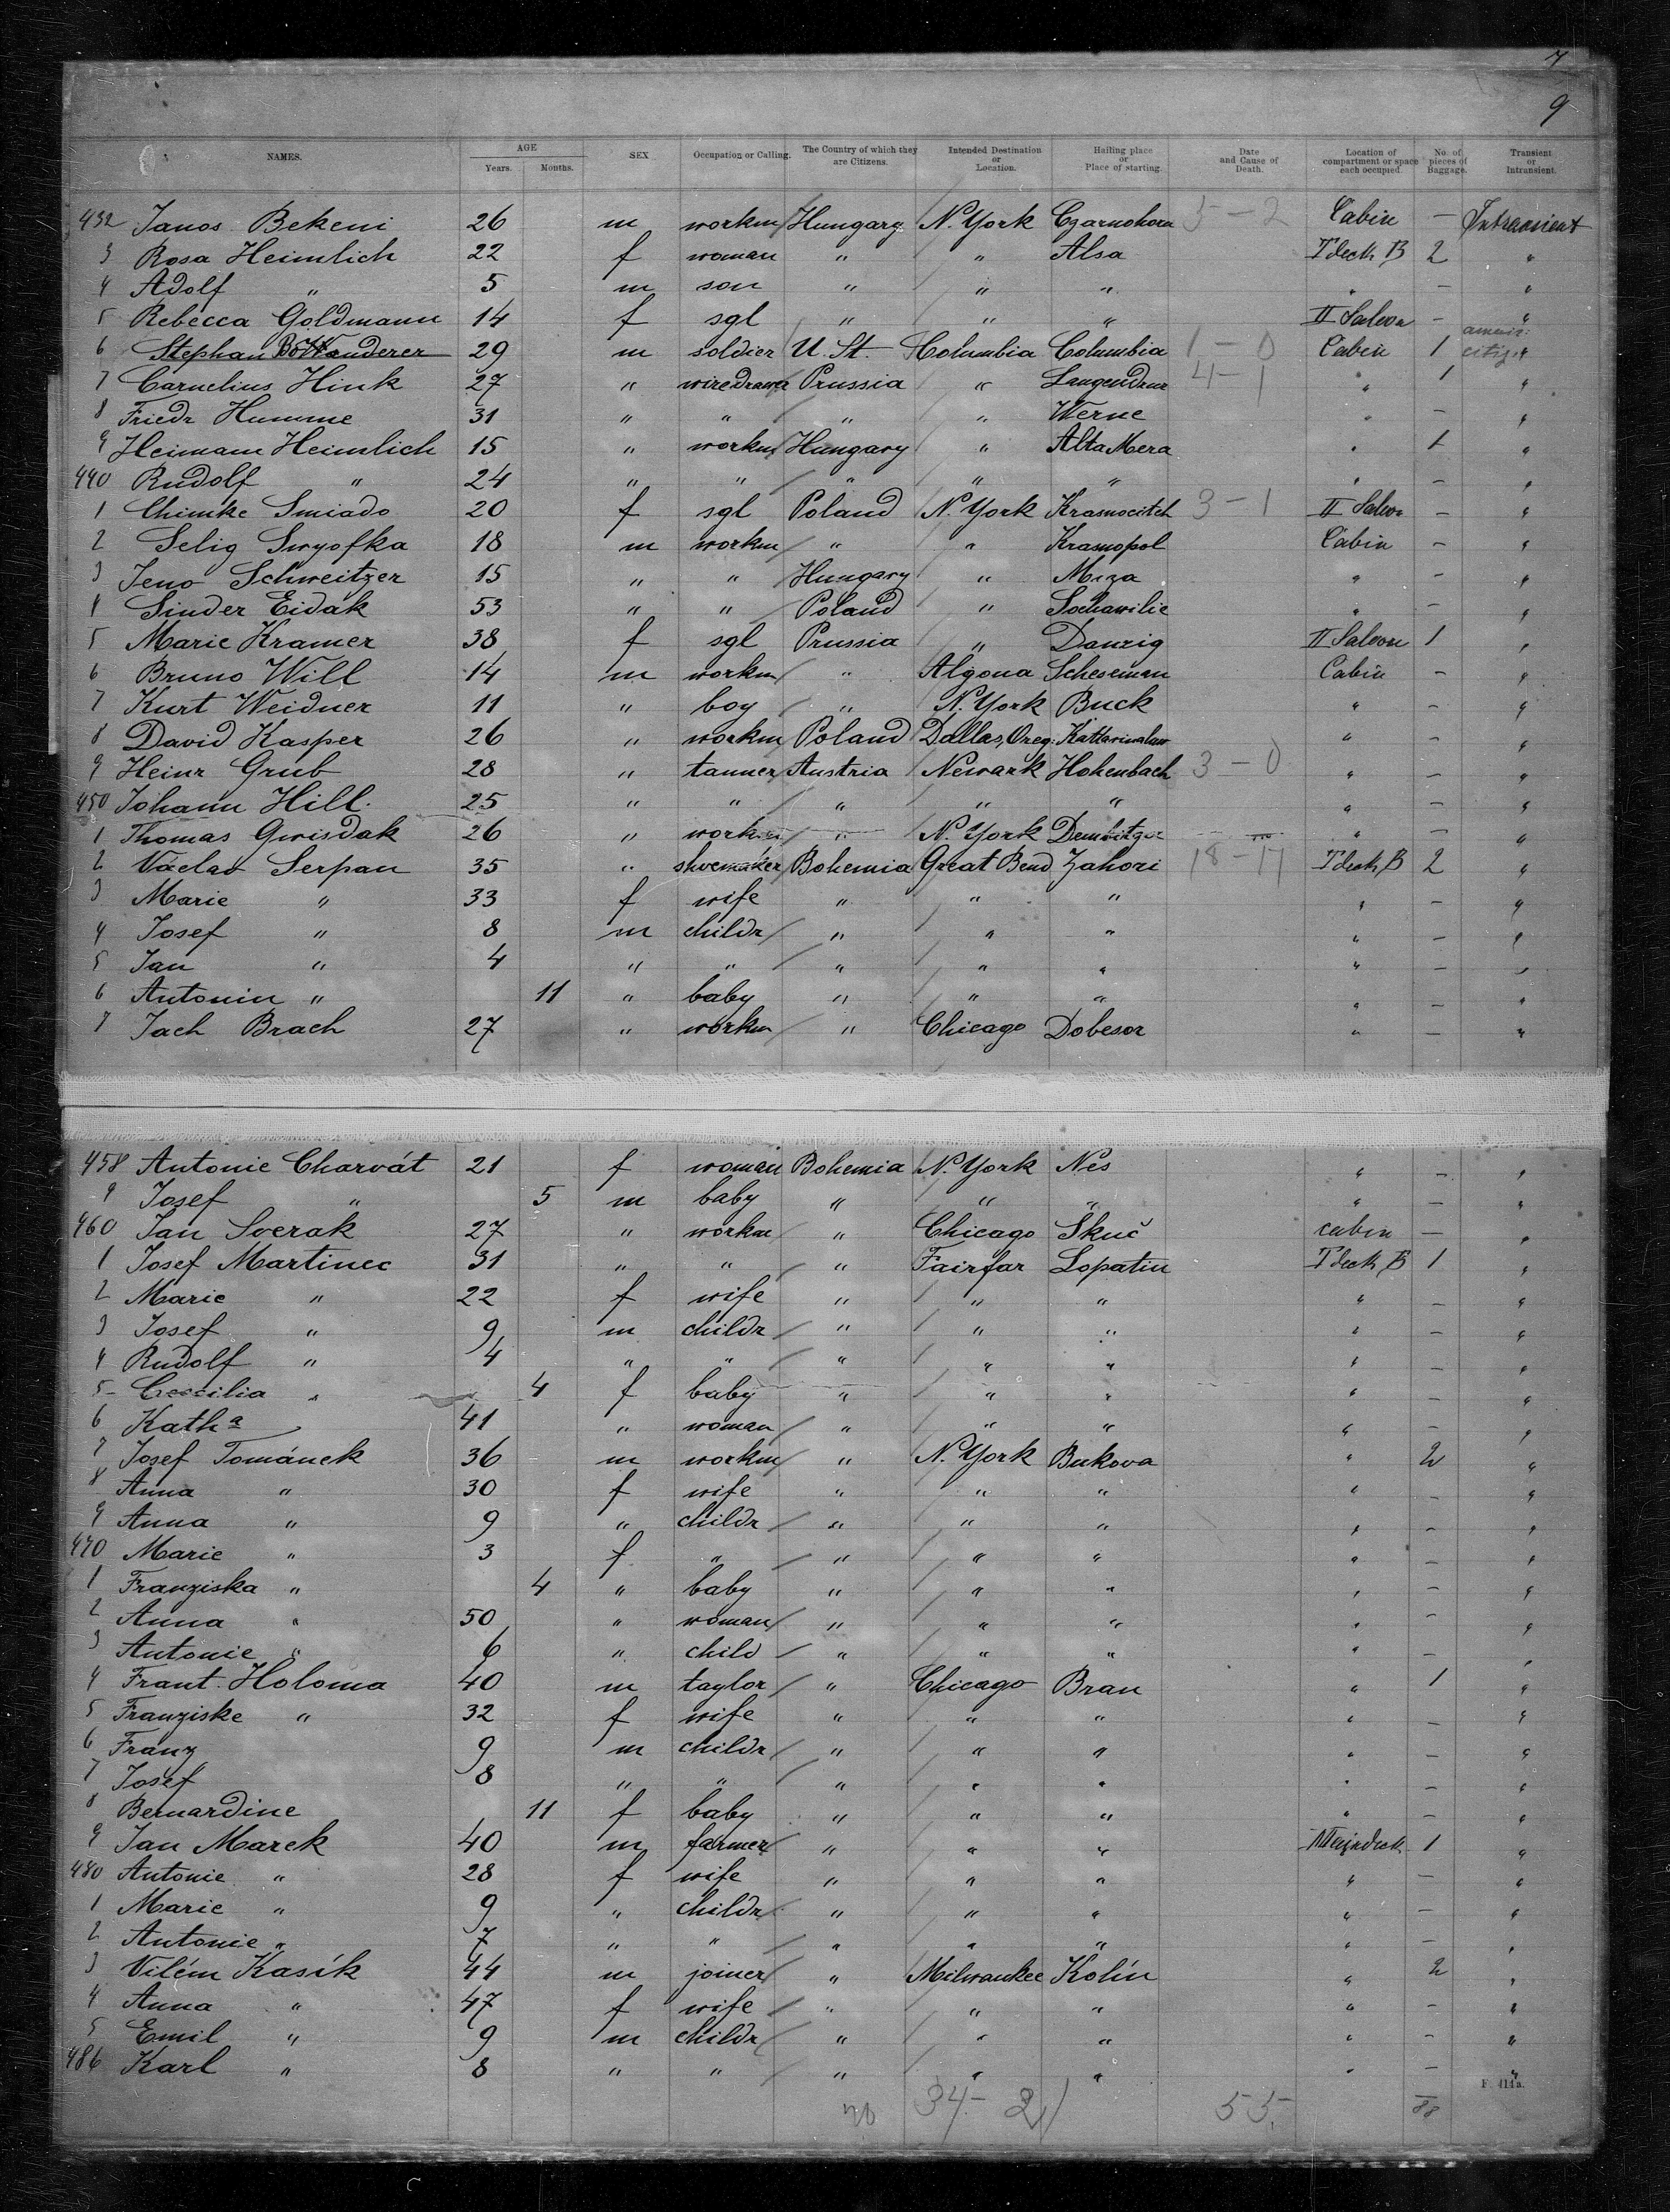 7
9
NAMES. AGE Years. Months. SEX Occupation or Calling. The Country of which they are Citizens. Intended Destination or Location. Hailing place or Place of starting. Date and Cause of Death. Location of compartment or space each occupied. No. of pieces of Baggage. Transient or Intransient.
432 Janos Bekeni 26 m workm Hungary N. York Czarnohora 5 - 2 Cabin — Intransient
3 Rosa Heimlich 22 f woman " " Alsa T deck B 2 "
4 Adolf " 5 m son " " " " — "
5 Rebecca Goldmann 14 f sgl " " " II Saloon — "
6 Stephan Wanderer 29 m soldier U. St. Columbia Columbia 1 - 0 Cabin 1 citiz. "
7 Carnelius Hink 27 " wiredrawer Prussia " 4 - 1 " 1 "
8 Friedr Humme 31 " " " " Werne " — "
9 Heimann Heimlich 15 " workm Hungary " Alta Mera " 1 "
440 Rudolf " 24 " " " " " " — "
1 Chimke Smiado 20 f sgl Poland N. York Krasnocitch 3 - 1 II Saloon — "
2 Selig Swyofka 18 m workm " " Krasnopol Cabin — "
3 Jeno Schweitzer 15 " " Hungary " Miza " — "
4 Sinder Eidak 53 " " Poland " Sochawilie " — "
5 Marie Kramer 38 f sgl Prussia " Danzig II Saloon 1 "
6 Bruno Will 14 m workm " Algona Scheseman Cabin — "
7 Kurt Weidner 11 " boy " N. York Buck " — "
8 David Kasper 26 " workm Poland Dallas, Oreg. " — "
9 Heinr Grub 28 " tanner Austria Newark Hohenbach 3 - 0 " — "
450 Johann Hill. 25 " " " " " " — "
1 Thomas Gwisdak 26 " workm " N. York " — "
2 Václav Serpan 35 " shoemaker Bohemia Great Bend Zahori 18 - 17 T deck B 2 "
3 Marie " 33 f wife " " " " — "
4 Josef " 8 m childr " " " " — "
5 Jan " 4 " " " " " " — "
6 Antonin " 11 " baby " " " " — "
7 Jach Brach 27 " workm " Chicago Dobesor " — "
458 Antonie Charvát 21 f woman Bohemia N. York Nes " — "
9 Josef " 5 m baby " " " " — "
460 Jan Sverak 27 " workm " Chicago Skuč cabin — "
1 Josef Martinec 31 " " " Fairfax Lopatin T deck B 1 "
2 Marie " 22 f wife " " " " — "
3 Josef " 9 m childr " " " " — "
4 Rudolf " 4 " " " " " " — "
5 Cecilia " 4 f baby " " " " — "
6 Katha " 41 " woman " " " " — "
7 Josef Tománek 36 m workm " N. York Bukova " 2 "
8 Anna " 30 f wife " " " " — "
9 Anna " 9 " childr " " " " — "
470 Marie " 3 f " " " " " — "
1 Franziska " 4 " baby " " " " — "
2 Anna " 50 " woman " " " " — "
3 Antonie " 6 " child " " " " — "
4 Frant. Holoma 40 m taylor " Chicago Bran " 1 "
5 Franziske " 32 f wife " " " " — "
6 Franz 9 m childr " " " " — "
7 Josef 8 " " " " " " — "
8 Bernardine 11 f baby " " " " — "
9 Jan Marek 40 m farmer " " " Maindeck 1 "
480 Antonie " 28 f wife " " " " — "
1 Marie " 9 " childr " " " " — "
2 Antonie " 7 " " " " " " — "
3 Vilém Kasík 44 m joiner " Milwaukee Kolín " 2 "
4 Anna " 47 f wife " " " " — "
5 Emil " 9 m childr " " " " — "
486 Karl " 8 " " " " " " — "
F. 414a.
34 - 21 55. 88